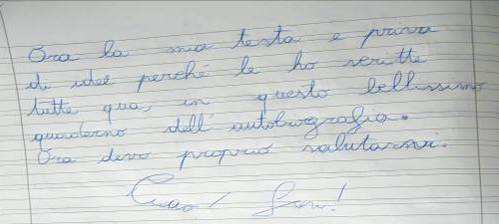 Ora la mia testa e priva
di idee perché le ho scritte
tutte qua, in questo bellissimo
quaderno dell'autobiografia.
Ora devo proprio salutarvi.
Ciao!